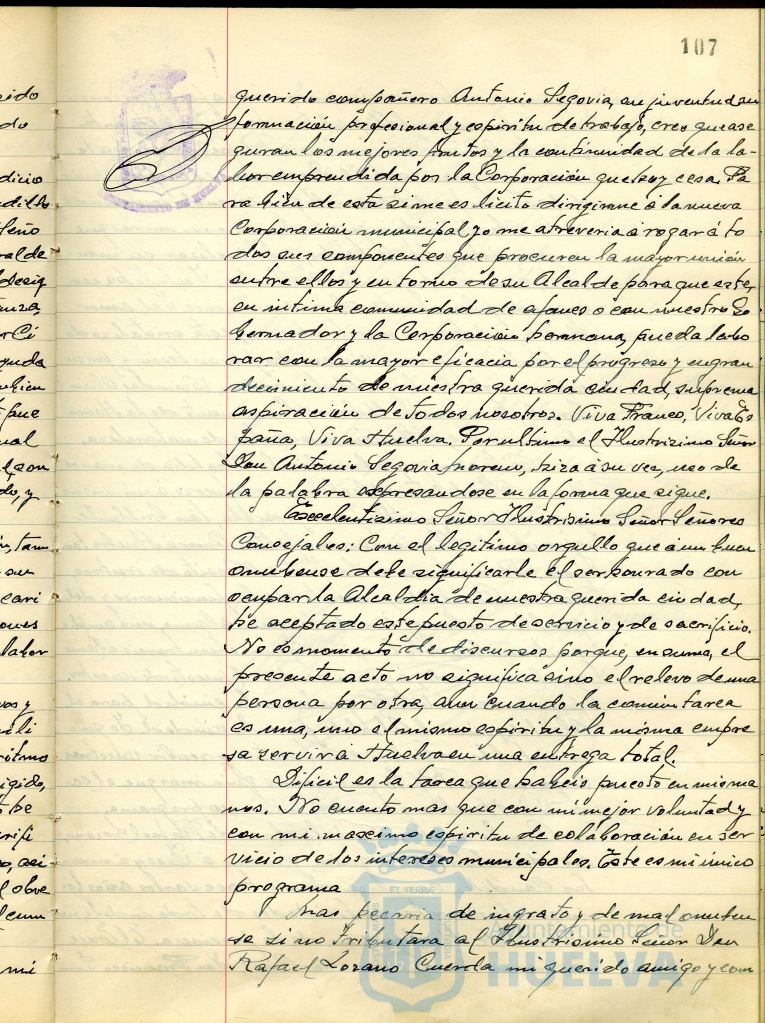 107
querido compañero Antonio Segovia, su juventud, su
formación profesional y espiritu de trabajo, creo que ase
guran los mejores frutos y la continuidad de la la-
bor emprendida por la Corporación que hoy cesa. Pa
ra bien de esta si me es licito dirigirme á la nueva
Corporación municipal yo me atreveria á rogar á to
dos sus componentes que procuren la mayor unión
entre ellos y en torno de su Alcalde para que este,
en intima comunidad de afanes o con nuestro Go
bernador y la Corporación hermana, pueda labo
rar con la mayor eficacia por el progreso y engran
decimiento de nuestra querida ciudad, suprema
aspiración de todos nosotros. Viva Franco, Viva Es
paña, Viva Huelva. Por ultimo el Ilustrisimo Señor
Don Antonio Segovia Moreno, hizo á su vez, uso de
la palabra expresandose en la forma que sigue.
Excelentisimo Señor Ilustrisimo Señor Señores
Concejales: Con el legitimo orgullo que á un buen
onubense debe significarle el ser honrado con
ocupar la Alcaldia de nuestra querida ciudad,
he aceptado este puesto de servicio y de sacrificio.
No es momento de discursos porque, en suma, el
presente acto no significa sino el relevo de una
persona por otra, aun cuando la comun tarea
es una, uno el mismo espiritu y la misma empre
sa servir á Huelva en una entrega total.
Dificil es la tarea que habeis puesto en mis ma
nos. No cuento mas que con mi mejor voluntad y
con mi maximo espiritu de colaboración en ser
vicio de los intereses municipales. Este es mi unico
programa
Mas pecaria de ingrato y de mal onuben
se si no tributara al Ilustrisimo Señor Don
Rafael Lozano Cuerda mi querido amigo y com
Ayuntamiento de
HUELVA